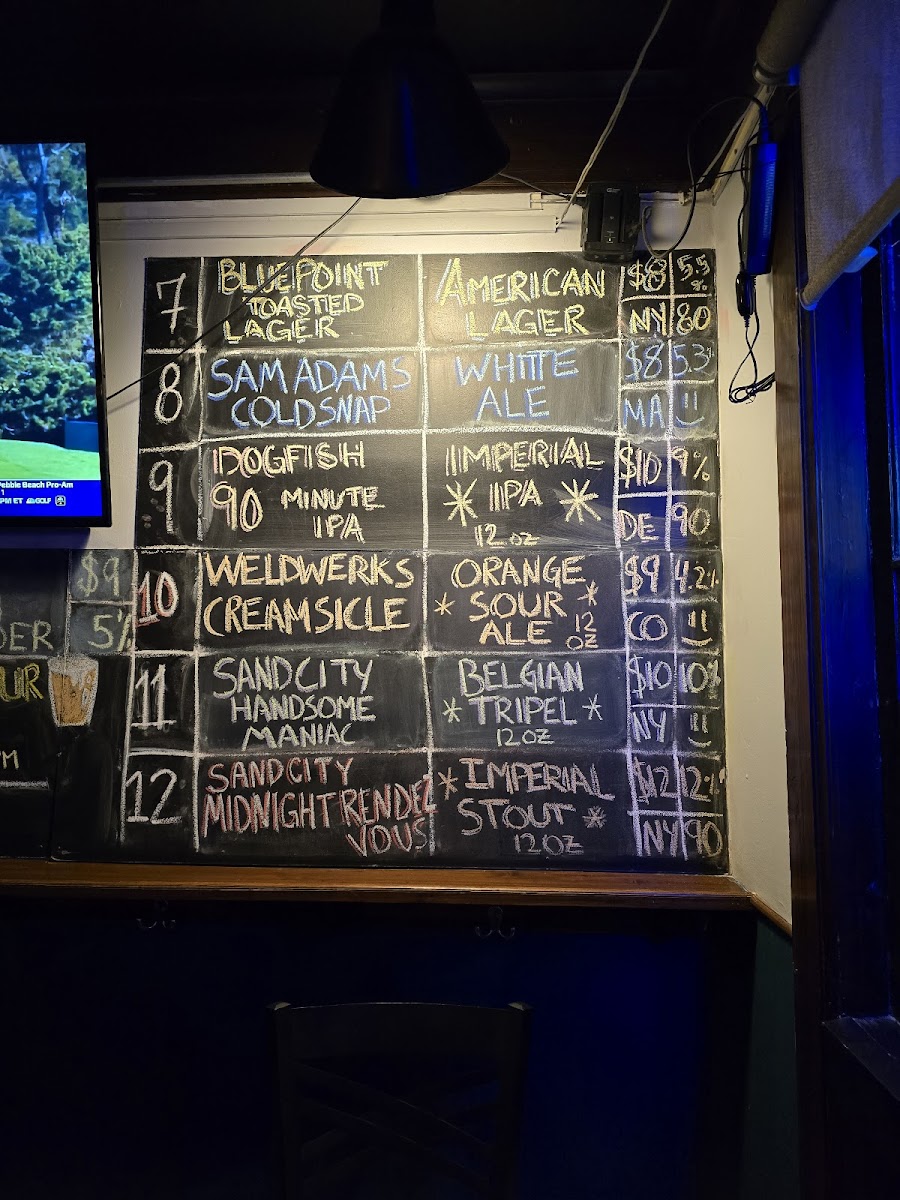 7 BLUEPOINT TOASTED LAGER AMERICAN LAGER $8 5.5 % NY 80
8 SAM ADAMS COLD SNAP WHITE ALE $8 5.3% MA
9 DOGFISH 90 MINUTE IPA IMPERIAL IPA 12 OZ $10 9% DE 90
10 WELDWERKS CREAMSICLE ORANGE SOUR ALE 12 OZ $9 4.2% CO
11 SAND CITY HANDSOME MANIAC BELGIAN TRIPEL 12 OZ $10 10% NY
12 SAND CITY MIDNIGHT RENDEZVOUS IMPERIAL STOUT 12 OZ $12 12% NY 90
$9
DER 5%
UR
PM
Pebble Beach Pro-Am
1
PM ET GOLF